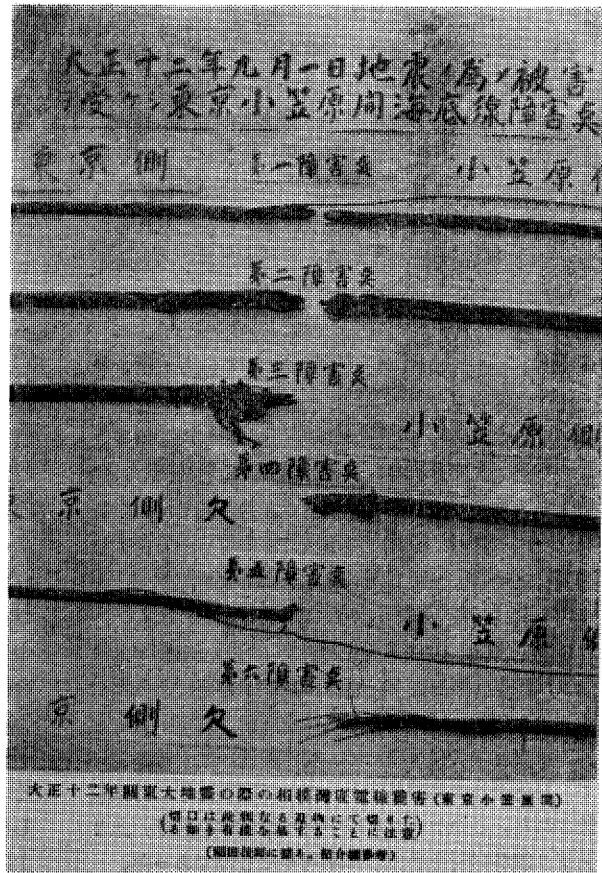 大正十二年九月一日地震ノ為ノ被害
ヲ受ケシ東京小笠原間海底線障害点
東京側 第一障害点 小笠原側
第二障害点
第三障害点
小笠原側
第四障害点
京側欠
第五障害点
小笠原
第六障害点
京側欠
大正十二年関東大地震の際の相模湾底電線障害(東京小笠原間)